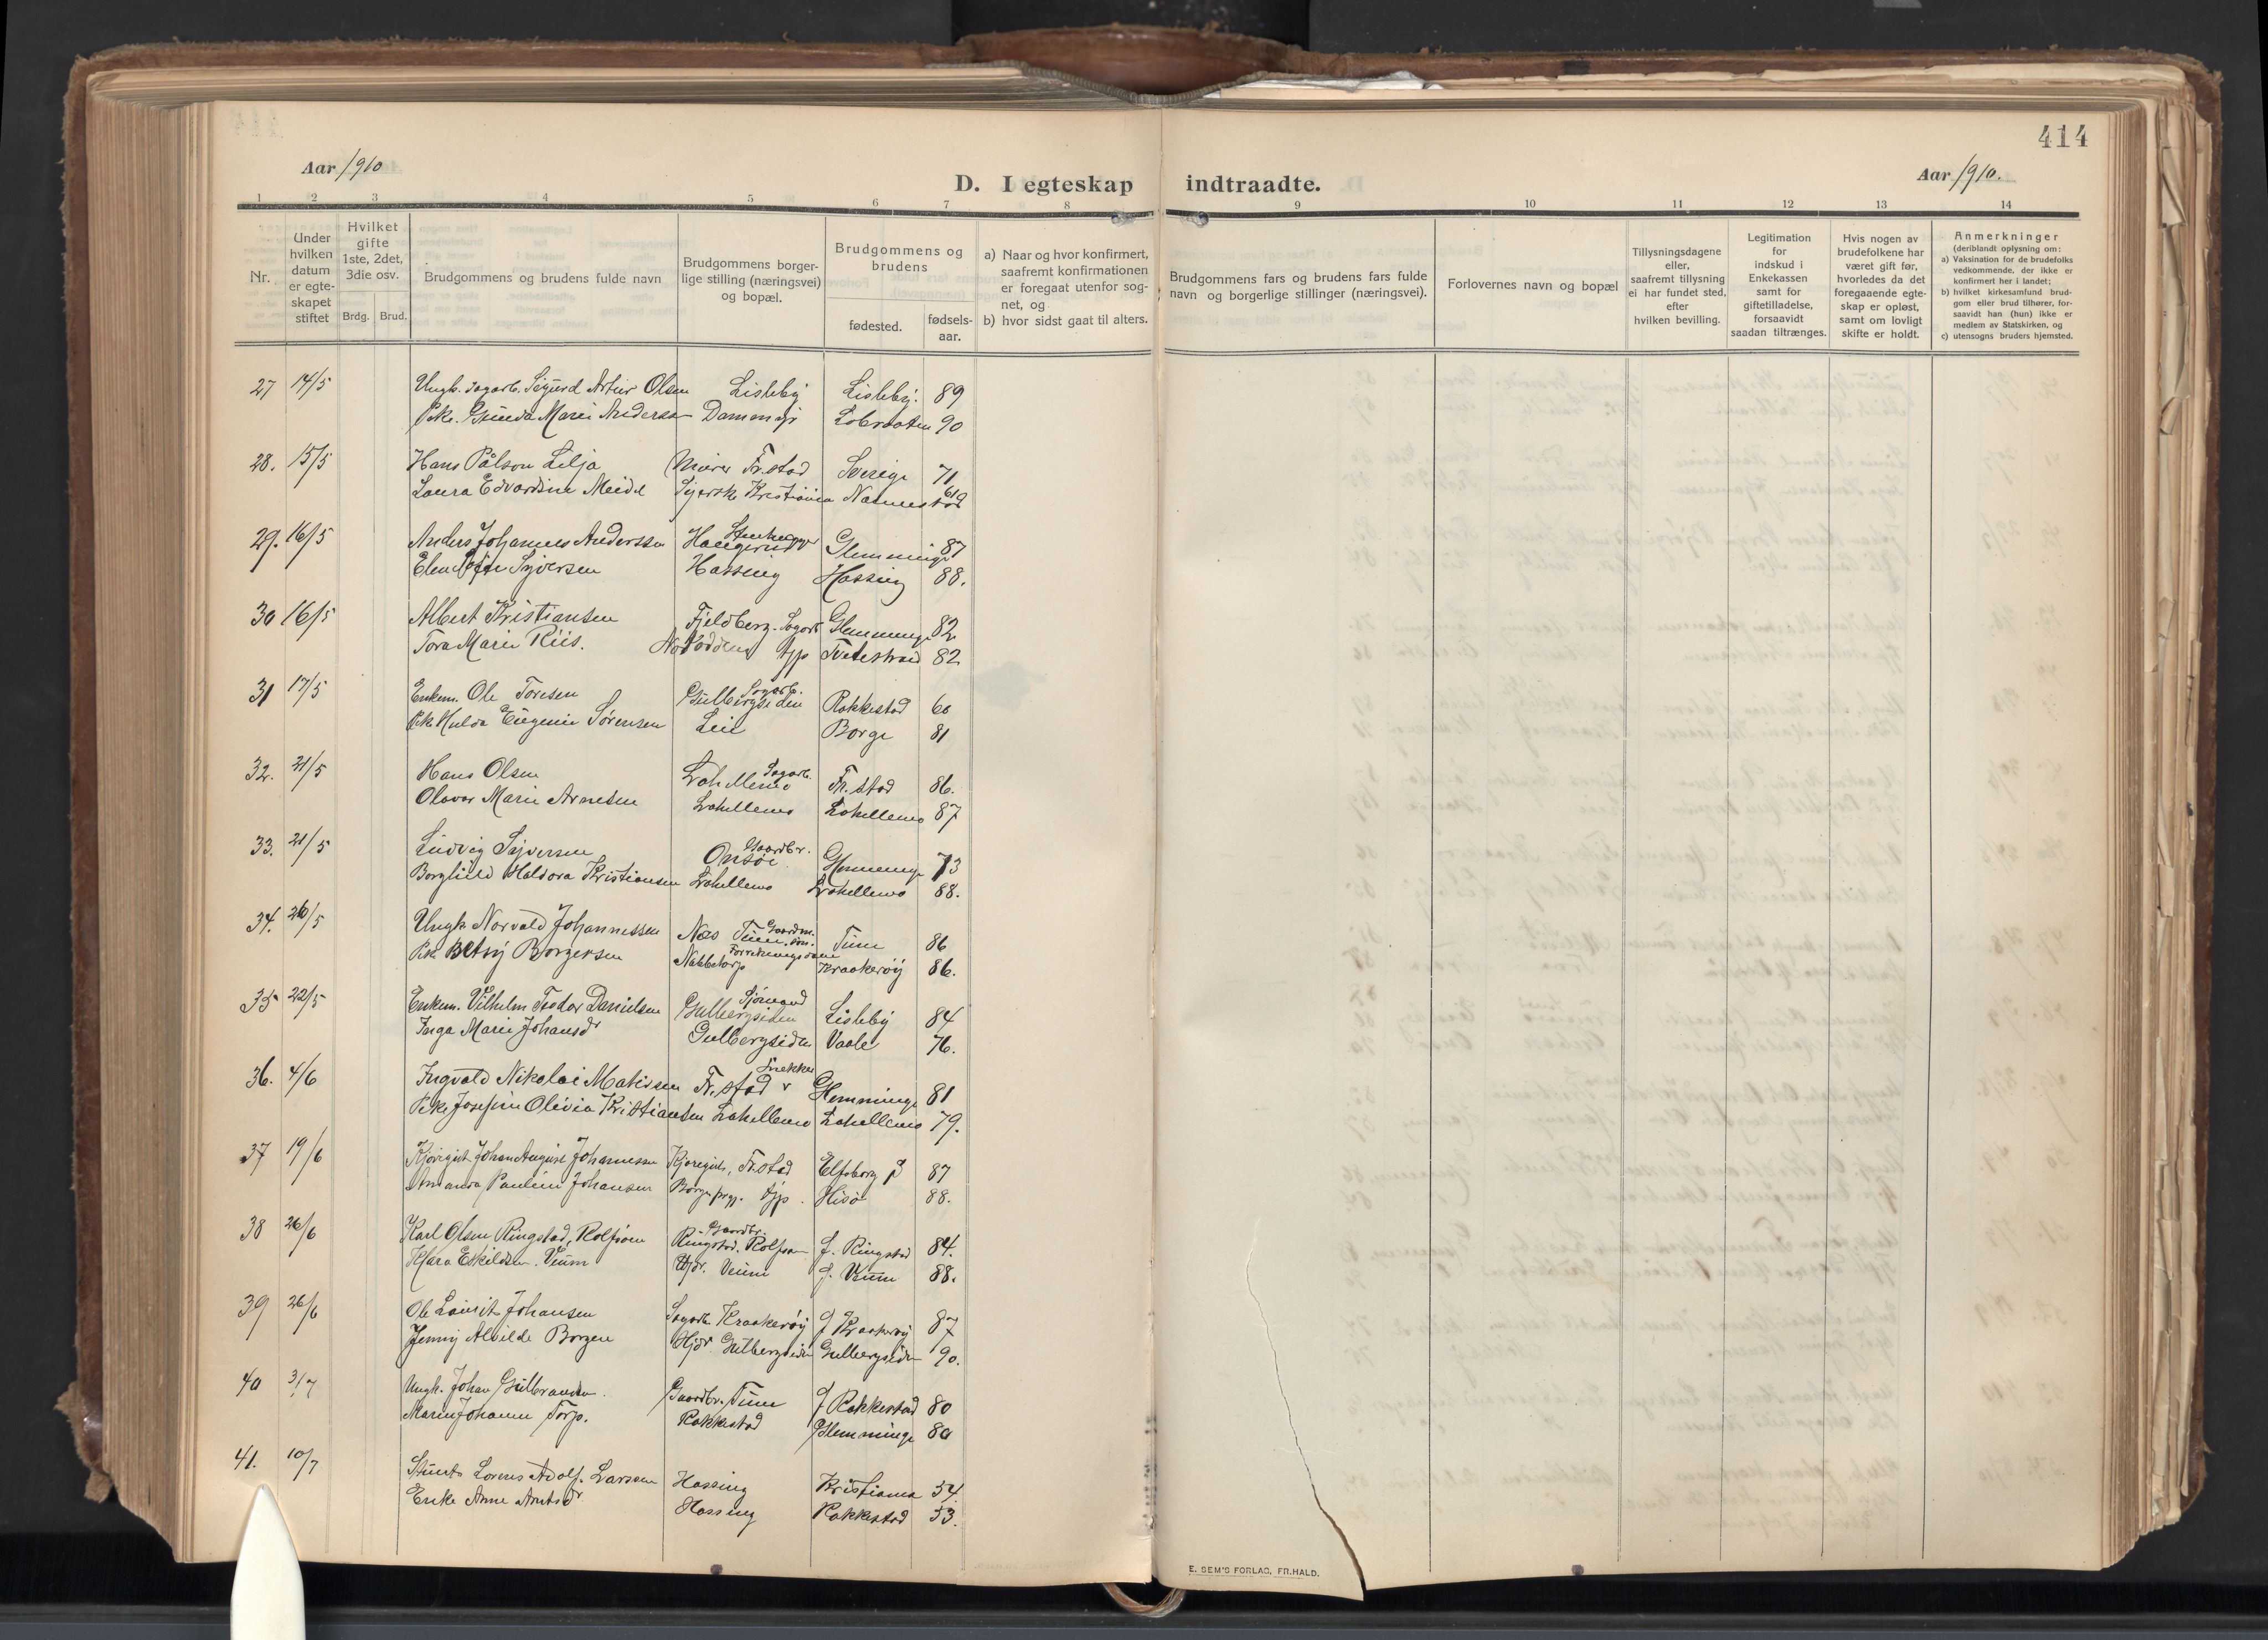 414
Aar 1910
D. I egteskap indtraadte.
Aar 1910.
1 2 3 4 5 6 7 8 9 10 11 12 13 14
Nr.
Under hvilken datum er egteskapet stiftet
Hvilket gifte 1ste, 2det, 3die osv.
Brdg. Brud.
Brudgommens og brudens fulde navn
Brudgommens borgerlige stilling (næringsvei) og bopæl.
Brudgommens og brudens
fødested.
fødselsaar.
a) Naar og hvor konfirmert, saafremt konfirmationen er foregaat utenfor sognet, og
b) hvor sidst gaat til alters.
Brudgommens fars og brudens fars fulde navn og borgerlige stillinger (næringsvei).
Forlovernes navn og bopæl
Tillysningsdagene eller, saafremt tillysning ei har fundet sted, efter hvilken bevilling.
Legitimation for indskud i Enkekassen samt for giftetilladelse, forsaavidt saadan tiltrænges.
Hvis nogen av brudefolkene har været gift før, hvorledes da det foregaaende egteskap er opløst, samt om lovligt skifte er holdt.
Anmerkninger
(deriblandt oplysning om:
a) Vaksination for de brudefolks vedkommende, der ikke er konfirmert her i landet;
b) hvilket kirkesamfund brudgom eller brud tilhører, forsaavidt han (hun) ikke er medlem av Statskirken, og
c) utensogns bruders hjemsted.
27 14/5 Ungk. Sagarb. Sigurd Artur Olsen Lisleby Lisleby. 89
Pike. Gunda Marie Andersen Dammyr 90
28. 15/5 Hans Pålson Lilja Murer Fr.stad Sverige 71
Laura Edvardine Meidel Syerske Kristiania Nannestad 69
29. 16/5 Anders Johannes Anderssen Stenhugger Haugerud Glemminge 87
Elen Sofie Syversen Hassing Hassing 88.
30 16/5 Albert Kristiansen Fjeldberg. Sagarb Glemminge 82
Tora Marie Riis. Notodden tjp Tvedestrand 82
31 17/5 Enkem. Ole Toresen Sagarb. Gulbergsiden Rakkestad 60
Pike Hulda Eugenie Sørensen Lie Borge 81
32. 21/5 Hans Olsen Sagarb. Lahellemo Fr.stad 86.
Olavar Marie Arnesen Lahellemo Lahellemo 87
33. 21/5 Ludvig Syversen Gaardbr. Onsøe Glemminge 73
Borghild Haldora Kristiansen Lahellemo Lahellemo 88.
34. 20/5 Ungk. Norvald Johannessen Næs Tune Gaardm. søn. Tune 86
Pike Betsy Borgersen Forretningsdame Nabbetorp Kraakerøy 86.
35 22/5 Enkem. Vilhelm Teodor Danielsen Sjømand Gulbergsiden Lisleby 84
Inga Marie Johansdr Gulbergsiden Vaale 76.
36. 4/6 Ingvald Nikolai Matisen Snekker Fr.stad Glemminge 81
Pike Josefine Olivia Kristiansen Lahellemo Lahellemo 79.
37 19/6 Johan August Johannessen Kjøregut, Fr.stad Elfsborg 87
Amanda Pauline Johansen Borge prgj. tjp. Hisø 88.
38 26/6 Karl Olsen Ringstad, Rolfsøen Gaardbr. Ringstad. Rolfsøen f. Ringstad 84.
Klara Eskildsen. Veum Hjdr. Veum f. Veum 88.
39 26/6 Ole Laurits Johansen Sagarb. Kraakerøy f Kraakerøy 87
Jenny Alvilde Borgen Hjdr Gulbergsiden Gulbergsiden 90.
40 3/7 Ungk. Johan Gulbrandsen. Gaardbr. Tune f Rakkestad 80
Marie Johanne Torp. Rakkestad Glemminge 80
41. 10/7 Lorens Adolf. Larssen Hassing Kristiania 54.
Enke Anne Arntsdr Hassing Rakkestad 53.
E. SEM'S FORLAG, FR.HALD.